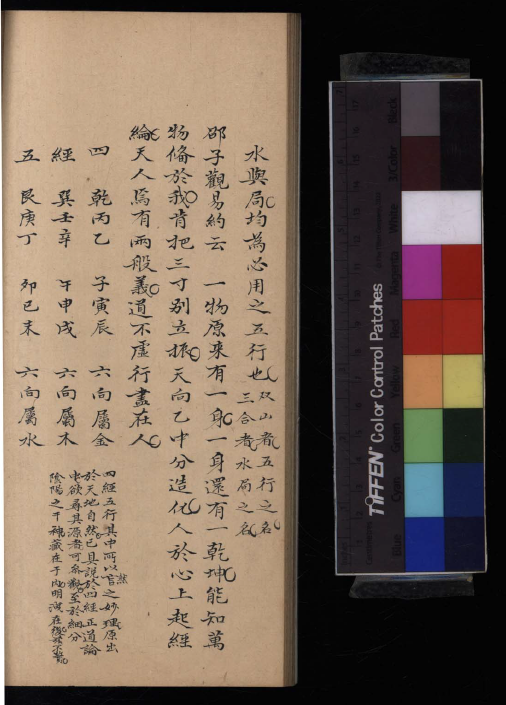 水與局均為必用之五行也
双山者五行之名
三合者水局之名
邵子觀易約云 一物原來有一身一身還有一乾坤能知萬
物俻於我肯把三寸別立根天向乙中分造化人於心上起經
綸天人焉有兩般義道不虛行盡在人
四 乾丙乙 子寅辰 六向屬金
經 巽壬辛 午申戌 六向屬木
五 艮庚丁 卯巳未 六向屬水
四經五行其中所以然之妙理原出
於天地自然已具說於四經正道論
中欲尋其源者可參觀至於細分
陰陽之干神藏在于內明演在
Black
3/Color
White
Magenta
Red
Yellow
Green
Cyan
Blue
TIFFEN Color Control Patches